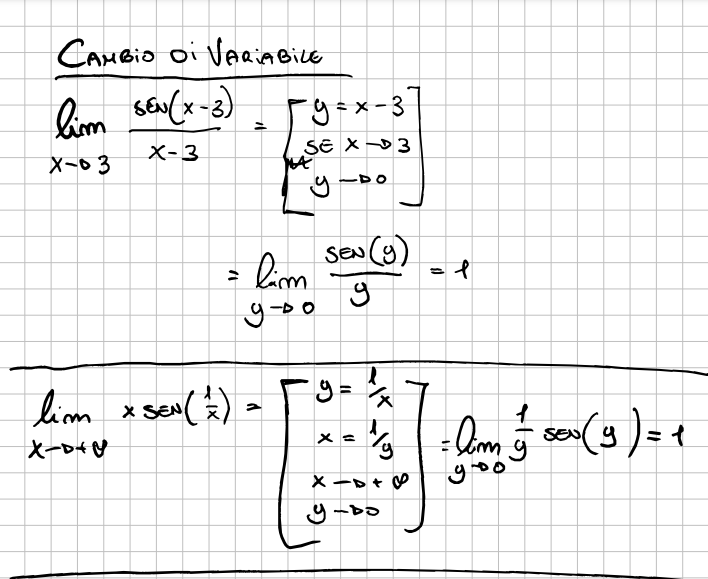 CAMBIO DI VARIABILE
lim x→3 sen(x-3)/(x-3) = [y = x-3
SE x→3
y→0]
= lim y→0 SEN(y)/y = 1
lim x→+∞ x SEN(1/x) = [y = 1/x
x = 1/y
x→+∞
y→0] = lim y→0 1/y SEN(y) = 1